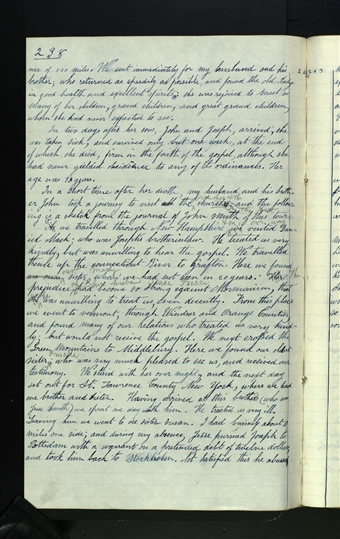 238
nce of 500 miles. We sent immediately for my husband and his
brother; who returned as speedily as possible, and found the old lady
in good health and excellent spirits; she was rejoiced to meet so
many of her children, grand children, and great grand children,
whom she had never expected to see.
In two days after her sons, John and Joseph, arrived, she
was taken sick; and survived only but one week, at the end
of which she died, firm in the faith of the gospel, although she
had never yielded obedience to any of its ordinances. Her
age was 93 years.
In a short time after her death my husband and his broth
er John took a journey to visit all the churches; and the follow
ing is a sketch from the journal of John Smith of this tour.
As we travelled through New Hampshire we visited Dani
el Mack; who was Joseph's brotherinlaw. He treated us very
kindly but was unwilling to hear the gospel. We travelled
thence up the Connecticut River to Grafton. Here we found
sister, whom we had not seen in 20 years. Her
prejudice had become so strong against Mormonism, that
she was unwilling to treat us, even decently. From this place
we went to Vermont, through Windsor and Orange Counties
and found many of our relations who treated us very kind-
ly; but would not receive the gospel. We next crossed the
Green Mountains to Middlebury. Here we found our
sister, who was very much pleased to see us, and received our
testimony. We staid with her over night; and the next day
set out for St. Lawrence County New York, where we had
one brother and sister. Having arrived at this brother (who was
Jesse Smith) we spent one day with him. He treated us very ill.
Leaving him we went to see sister Susan. I had business about
miles one side; and during my absence, Jesse pursued Joseph to
Potsdam with a warrant on a pretended debt of twelve dollars
and took him back to Stockholm. Not satisfied this he abused